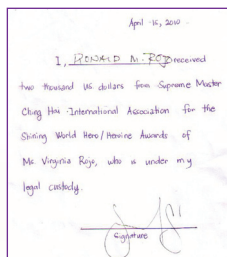 April 16, 2010
I, RONALD M. ROJO received
two thousand US dollars from Supreme Master
Ching Hai International Association for the
Shining World Hero/Heroine Awards of
Ms. Virginia Rojo, who is under my
legal custody.
Signature